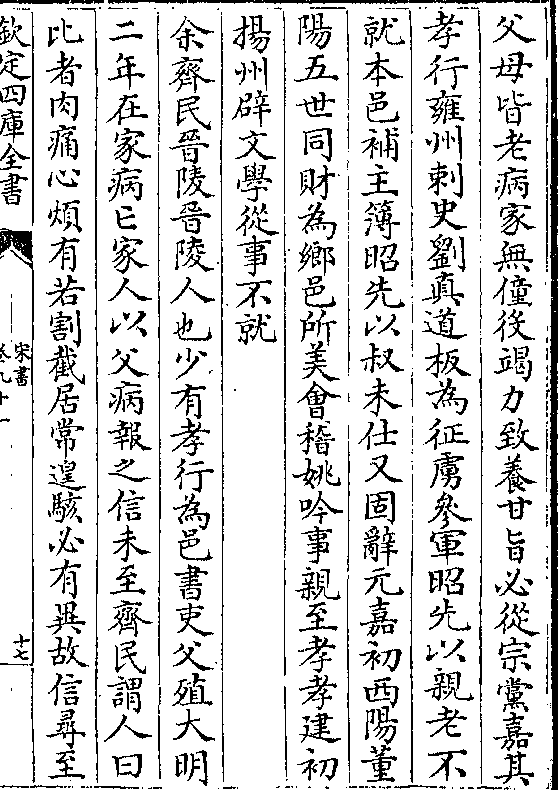 父母皆老病家無僮役竭力致養甘旨必從宗黨嘉其
孝行雍州刺史劉真道板為征虜參軍昭先以親老不
就本邑補主簿昭先以叔未仕又固辭元嘉初西陽董
陽五世同財為鄉邑所美會稽姚吟事親至孝孝建初
揚州辟文學從事不就
余齊民晉陵晉陵人也少有孝行為邑書吏父殖大明
二年在家病亡家人以父病報之信未至齊民謂人曰
比者肉痛心煩有若割截居常遑駭必有異故信尋至
欽定四庫全書
宋書
卷九十一
十七